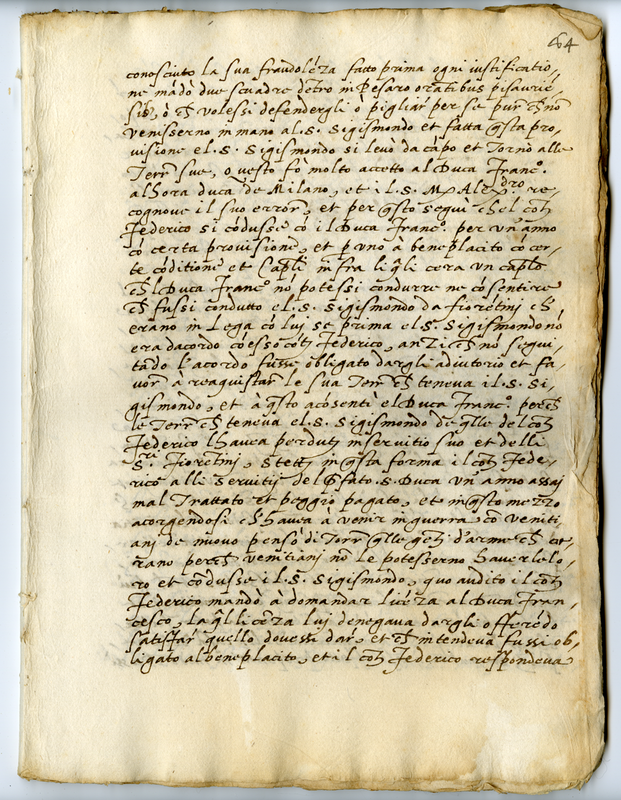 64
conosciuto la sua fraudolẽza fatto prima ogni iustificatio,
ne mãdò due scuadre dẽtro in Pesaro oratibus pisaurie,
ò volessi defendergli ò pigliar per se pur nõ
venisserno in mano al .S. Sigismondo et fatta qsta pro,
visione el .S. Sigismondo si levò da capo et Tornò alle
Terr sue, o vesto fò molto accetto al Duca Franc.º
alhora duca de Milano, et il .S. M Alex.dro re,
cognove il suo error, et per qsto seguì chel cõt
Federico si cõdusse cõ il Duca Franc.º per un anno
cõ certa provisione, et p uno à beneplacito cõ cer,
te cõditione et Capli infra li qli cera un caplo
chl Duca Franc.º nõ potessi condurre ne cõsentire
ch fussi condutto el .S. Sigismondo da fioretinj ch
erano in Lega cõ lui se prima el .S. Sigismondo nõ
era dacordo cõ esso cõt Federico, anzi ch nõ segui,
tãdo l'acordo fussi obligato dargli adiutorio et fa,
vor à reaquistar le sua Terr ch teneva il .S. Si,
gismondo, et à qsto acõsentì el Duca Franc.º perch
le Terr ch teneva el .S. Sigismondo di qlle del cõt
Federico l'haveva perdutj in servitio suo et delli
S.ri Fioretinj, stettj in qsta forma il cõt Fede,
rico alli servitij del pfato .S. Duca un anno assai
mal Trattato et peggio pagato, et in qsto mezzo
acorgendosi ch havea à venir in guerra cõ veniti,
anj de nuovo pensò di Torr qlle gẽtj d'arme ch
rano perch venitianj nõ le potesserno haverle lo,
ro et cõdusse il .S. Sigismõdo, quo audito il cõt
Federico mandò à domandar licẽza al Duca Fran,
cesco, la qlli licẽza luj denegava dargli offerẽdo
satisfar quello dovessi dar, et ch intendeva fussi ob,
ligato al beneplacito, et il cõt Federico respondeva